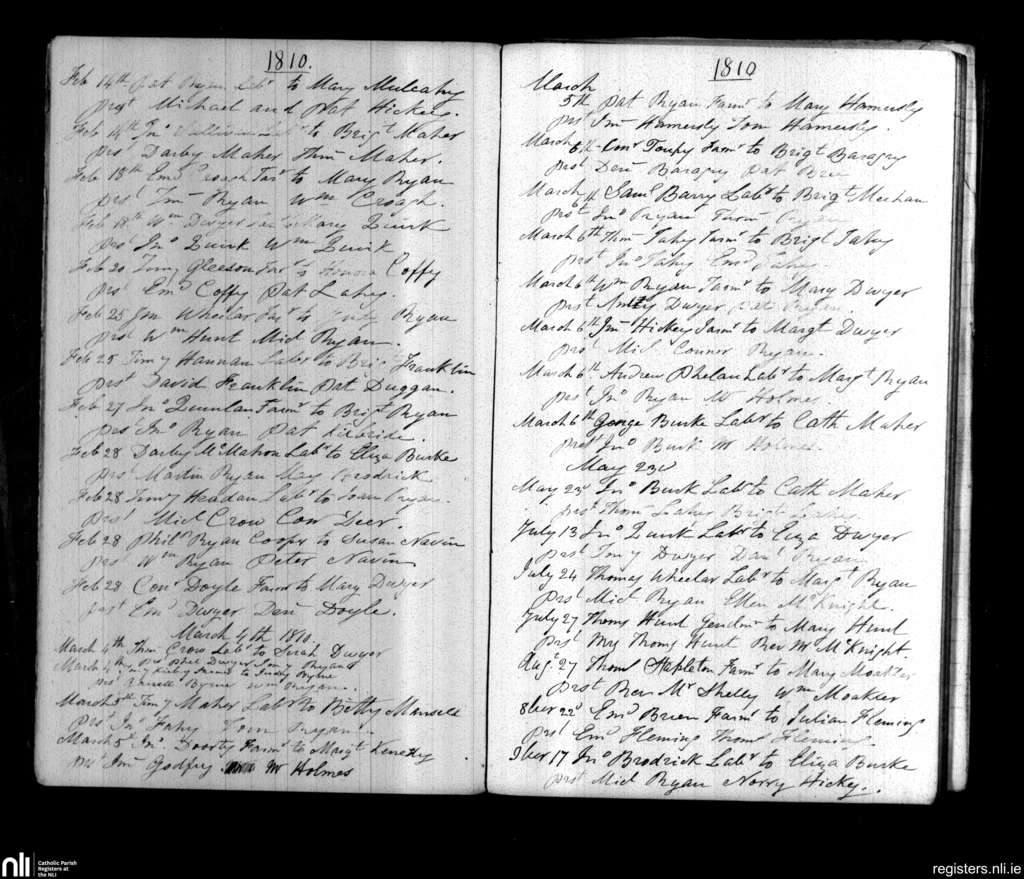 1810.
Feb 14th Pat Ryan Labr to Mary Mulcahy
prst Michael and Pat Hickey.
Feb 14th Jno Sullivan Labr to Brigt Maher
prst Darby Maher Thms Maher.
Feb 15th Emd Croagh Far to Mary Ryan
prst Jms Ryan Wm Croagh.
Feb 18th Wm Dwyer to Mary Quirk
prst Jno Quirk Wm Quirk
Feb 20 Timy Gleeson Far to Honora Coffy
prst Emd Coffy Pat Lahy.
Feb 25 Jms Wheelar Far to Judy Ryan
prst Wm Hunt Micl Ryan.
Feb 25 Timy Hannan Labr to Brigt Franklin
prst David Franklin Pat Duggan.
Feb 27 Jno Quinlan Farmr to Brigt Ryan
prst Jno Ryan Pat Kilbride.
Feb 28 Darby McMahon Labr to Eliza Burke
prst Martin Ryan Mary Brodrick
Feb 28 Timy Headan Labr to Ryan.
prst Micl Crow Con Deer.
Feb 28 Phil Ryan Cooper to Susan Navin
prst Wm Ryan Peter Navin
Feb 28 Conr Doyle Farmr to Mary Dwyer
prst Emd Dwyer Denis Doyle.
March 4th 1810.
March 4th Thms Crow Labr to Sarah Dwyer
prst Phil Dwyer Timy Ryan
March 4th to Judy Byrne
prst Byrne Wm Ryan.
March 5th Timy Maher Labr to Betty Mansell
prst Jno Fahy Tom Ryan.
March 5th Jno Doorty Farmr to Margt Kenedy
prst Jms Godfry Mr Holmes
1810
March
5th Pat Ryan Farmr to Mary Hamersly
prst Jms Hamersly Tom Hamersly.
March 6th Conr Toupy Farmr to Brigt Baragry
prst Denis Baragry Pat Bree
March 6th Saml Barry Labr to Brigt Meehan
prst Jno Ryan Ryan
March 6th Thms Fahy Farmr to Brigt Fahy
prst Jno Fahy Emd Fahy
March 6th Wm Ryan Farmr to Mary Dwyer
prst Anty Dwyer Pat Ryan
March 6th Jms Hickey Farmr to Margt Dwyer
prst Micl Connor Ryan.
March 6th Andrew Phelan Labr to Margt Ryan
prst Jno Ryan Mr Holmes.
March 6th George Burke Labr to Cath Maher
prst Jno Burk Mr Holmes.
May 23d
May 23d Jno Burk Labr to Cath Maher
prst Thoms Laher Brigt Laher
July 13 Jno Quirk Labr to Eliza Dwyer
prst Timy Dwyer Danl Ryan
July 24 Thomas Wheelar Labr to Margt Ryan
prst Micl Ryan Ellen McKnight.
July 27 Thoms Hunt Gendmr to Mary Hunt
prst Mrs Thoms Hunt Rev Mr McKnight.
Augt 27 Thoms Stapleton Farmr to Mary Moakler
prst Rev Mr Shelly Wm Moakler
8ber 22d Emd Brien Farmr to Julian Fleming
prst Emd Fleming Thoms Fleming.
9ber 17 Jno Brodrick Labr to Eliza Burke
prst Micl Ryan Norry Hickey.
nli
Catholic Parish
Registers at
the NLI
registers.nli.ie